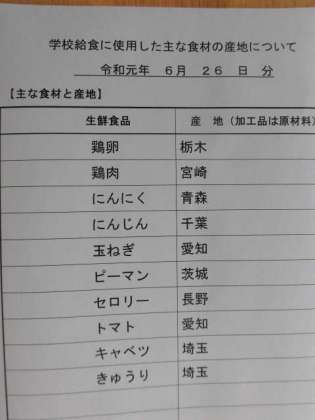 学校給食に使用した主な食材の産地について
令和元年　６月　２６　日　分
【主な食材と産地】
生鮮食品　産　地（加工品は原材料
鶏卵　栃木
鶏肉　宮崎
にんにく　青森
にんじん　千葉
玉ねぎ　愛知
ピーマン　茨城
セロリー　長野
トマト　愛知
キャベツ　埼玉
きゅうり　埼玉